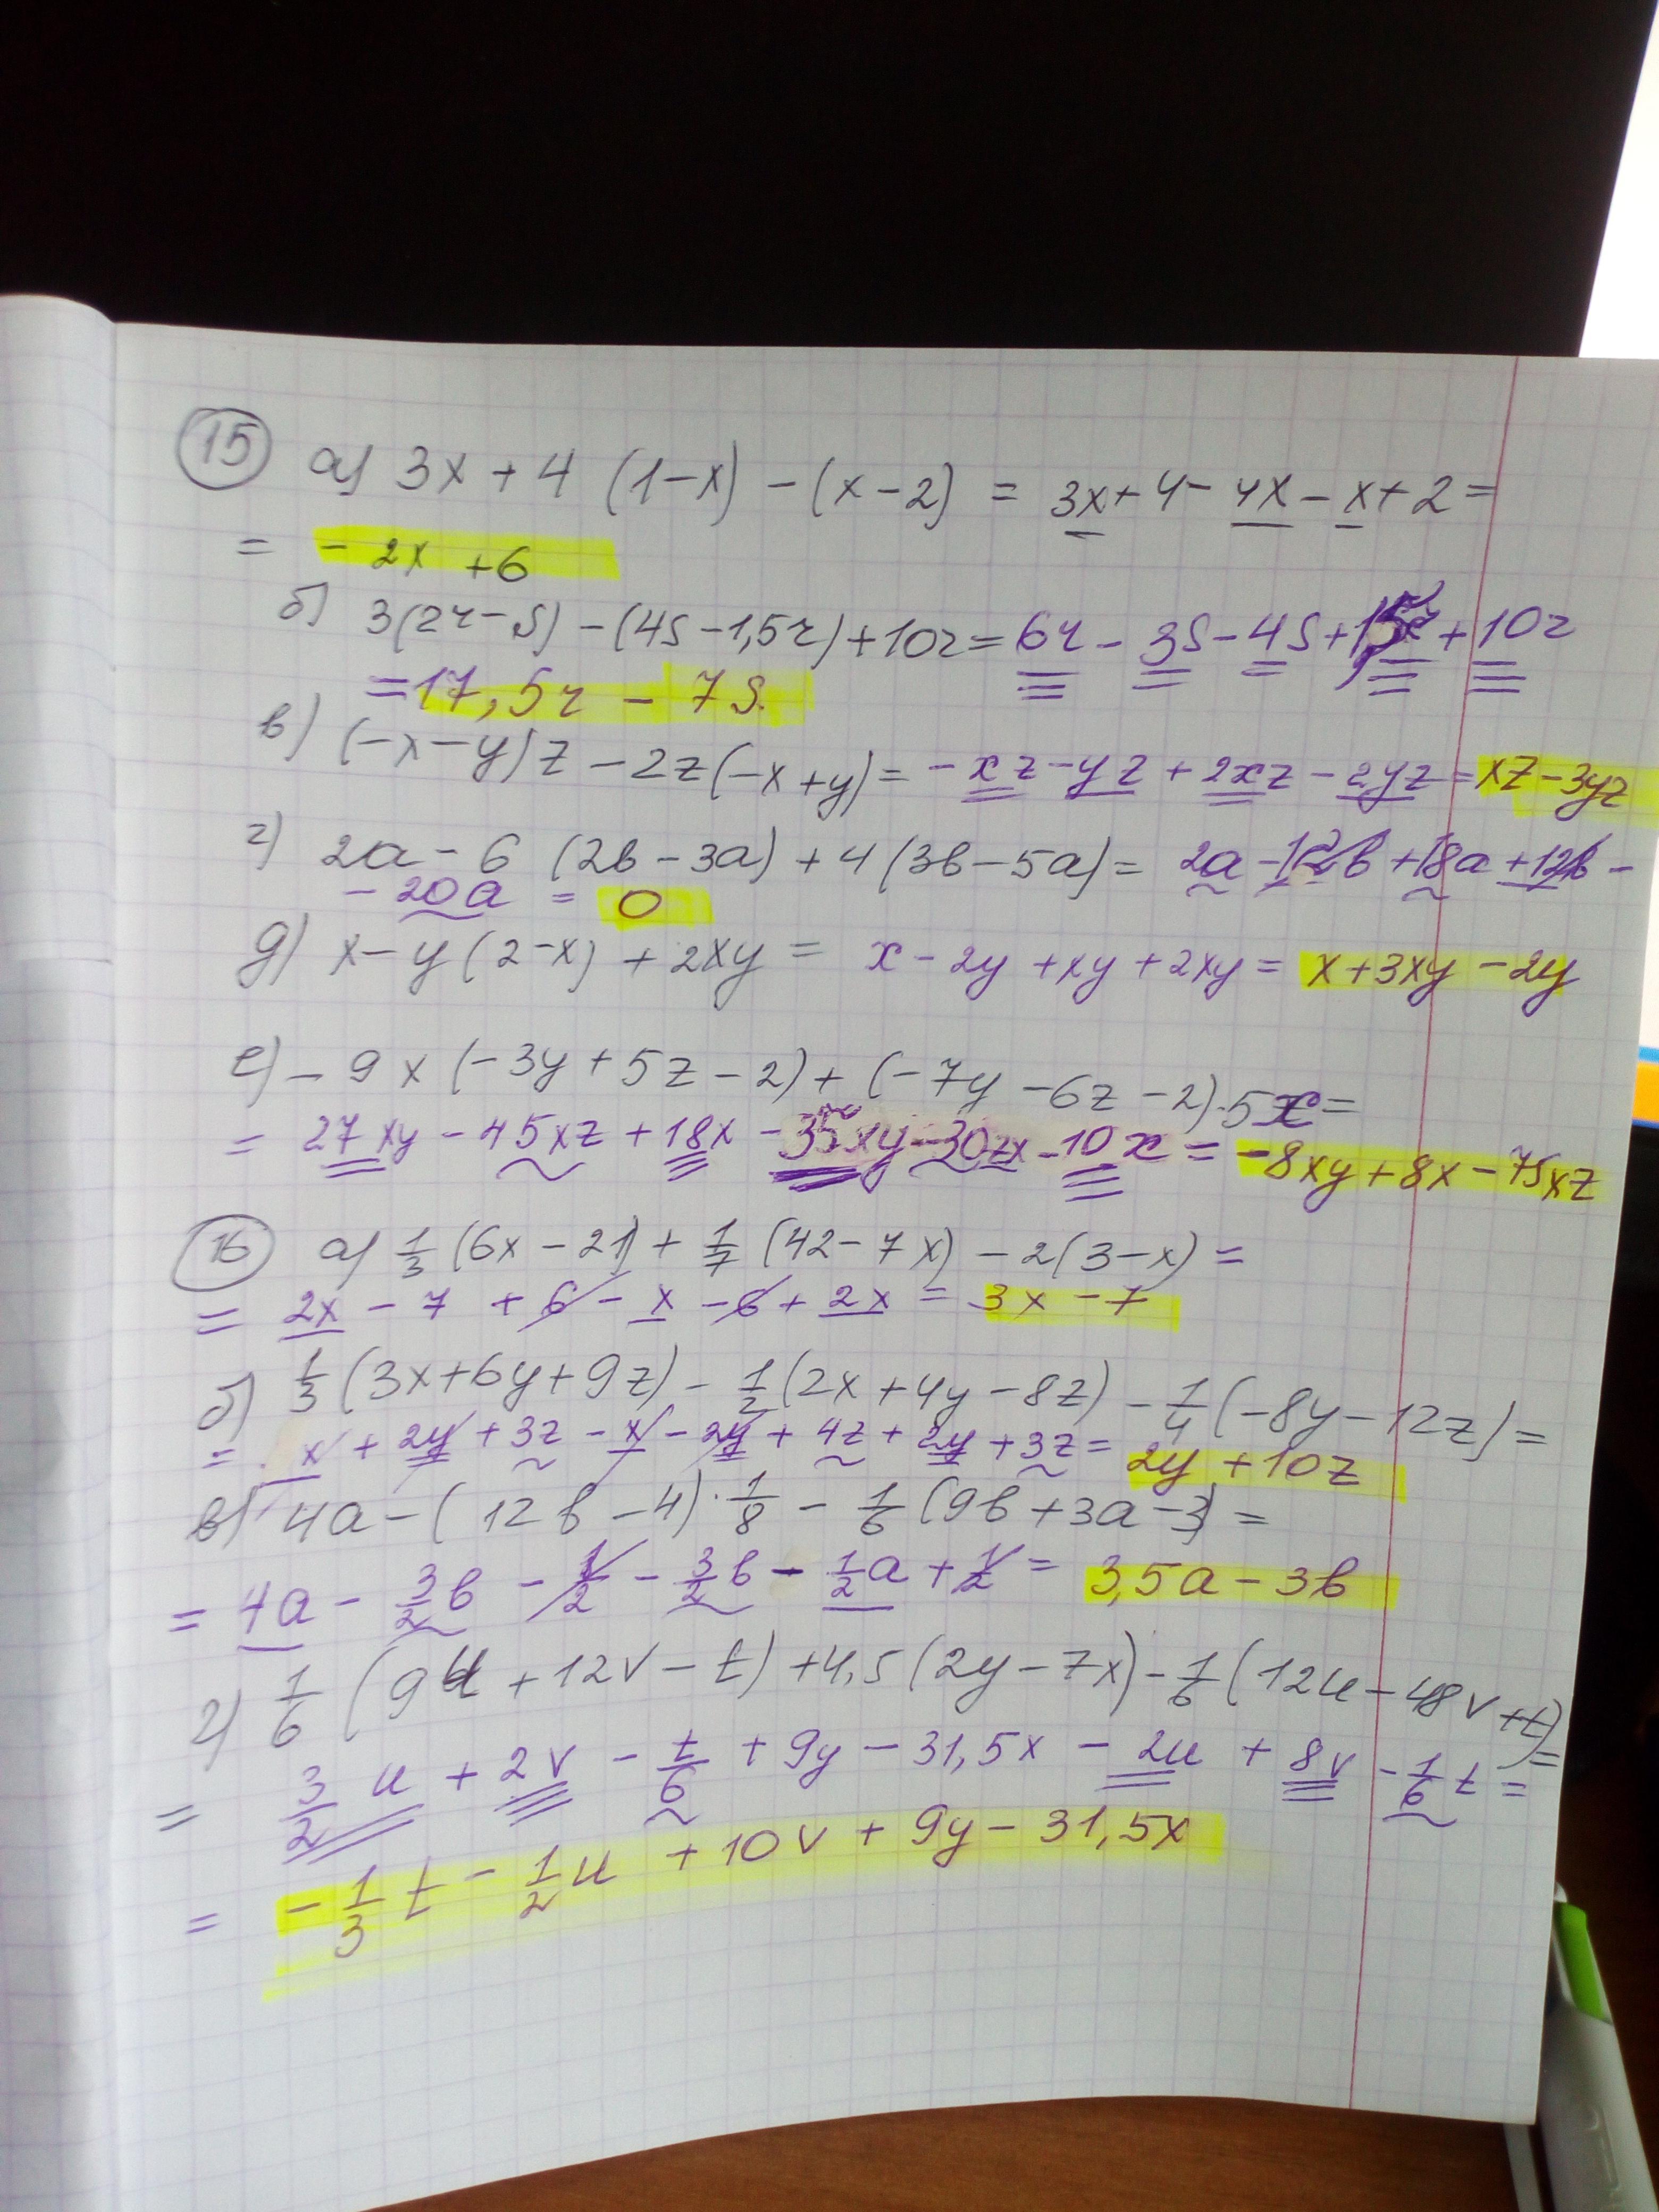 15 а) 3x + 4 (1-x) - (x-2) = 3x + 4 - 4x - x + 2 =
= -2x + 6
б) 3(2r-s) - (4s-1,5r) + 10r = 6r - 3s - 4s + 1,5r + 10r
= 17,5r - 7s.
в) (-x-y)z - 2z(-x+y) = -xz - yz + 2xz - 2yz = xz - 3yz
г) 2a - 6 (2b - 3a) + 4 (3b - 5a) = 2a - 12b + 18a + 12b -
- 20a = 0
д) x - y (2-x) + 2xy = x - 2y + xy + 2xy = x + 3xy - 2y
е) - 9x (-3y + 5z - 2) + (-7y - 6z - 2)·5x =
= 27xy - 45xz + 18x - 35xy - 30zx - 10x = -8xy + 8x - 75xz
16 а) 1/3 (6x - 21) + 1/7 (42 - 7x) - 2(3-x) =
= 2x - 7 + 6 - x - 6 + 2x = 3x - 7
б) 1/3 (3x + 6y + 9z) - 1/2 (2x + 4y - 8z) - 1/4 (-8y - 12z) =
= x + 2y + 3z - x - 2y + 4z + 2y + 3z = 2y + 10z
в) 4a - (12b - 4)·1/8 - 1/6 (9b + 3a - 3) =
= 4a - 3/2 b - 1/2 - 3/2 b - 1/2 a + 1/2 = 3,5a - 3b
г) 1/6 (9u + 12v - t) + 4,5 (2y - 7x) - 1/6 (12u - 48v + t) =
= 3/2 u + 2v - t/6 + 9y - 31,5x - 2u + 8v - 1/6 t =
= -1/3 t - 1/2 u + 10v + 9y - 31,5x